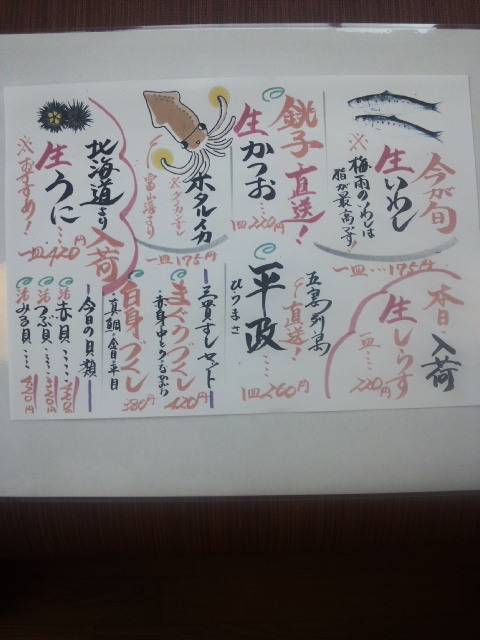 今が旬
生いわし
※梅雨のいわしは
脂が最高です!
一皿…175円
銚子直送!
生かつお…
1皿220円
ホタルイカ
富山湾より
一皿175円
北海道より入荷
生うに…
※おすすめ!
一皿420円
本日入荷
生しらす
一皿…220円
五島列島
直送!
平政
ひらまさ
1皿260円
三貫すしセット
まぐろづくし
420円
白身づくし
真鯛・
平目
380円
今日の貝類
活赤貝…
活つぶ貝…
活みる貝…